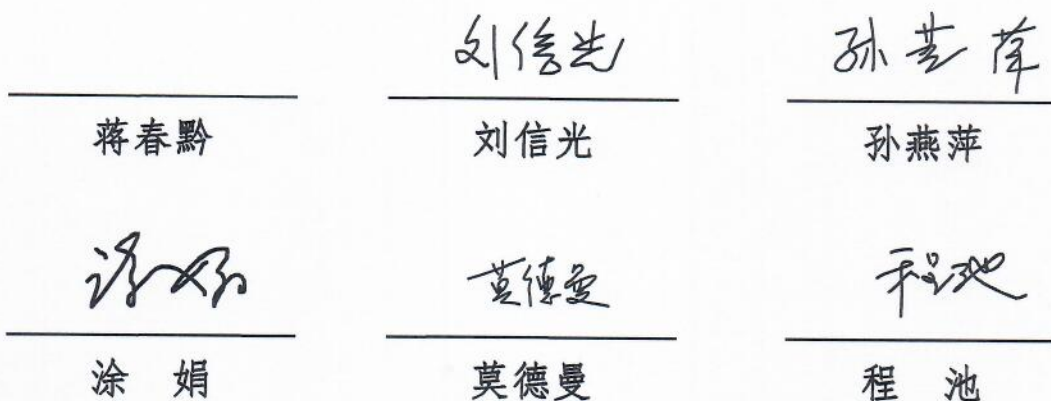 刘信光 孙燕萍
蒋春黔 刘信光 孙燕萍
涂娟 莫德曼 程池
涂 娟 莫德曼 程 池